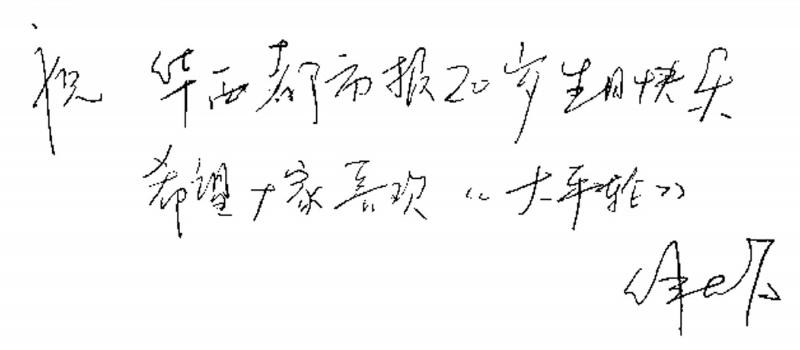 祝 华西都市报20岁生日快乐
希望大家喜欢《太平轮》